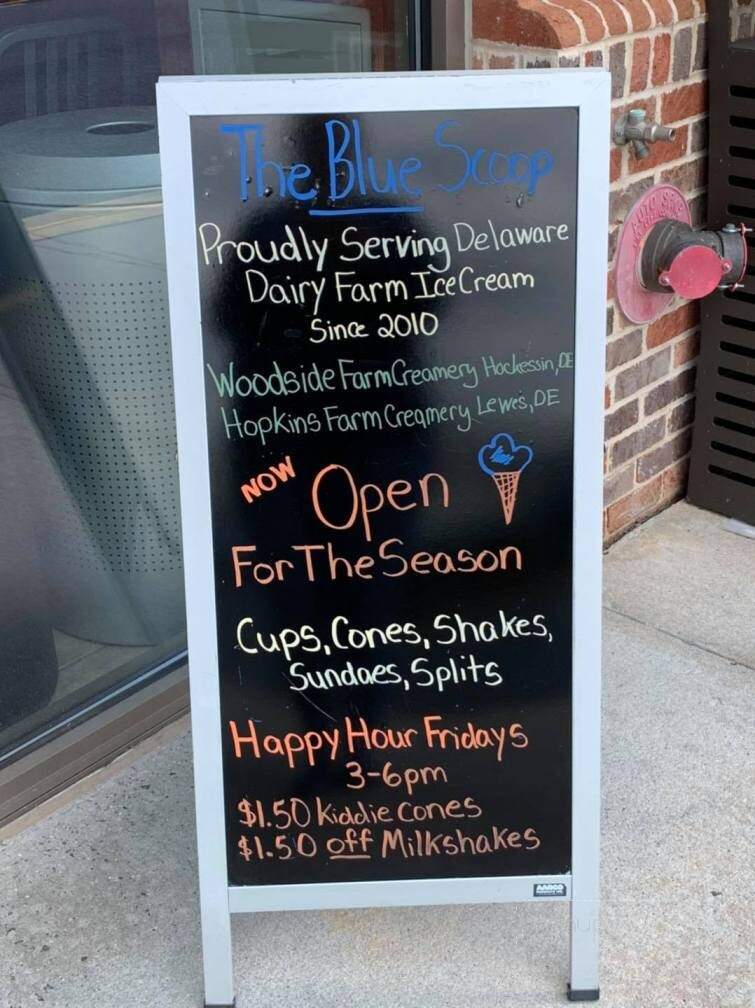 The Blue Scoop
Proudly Serving Delaware
Dairy Farm Ice Cream
Since 2010
Woodside Farm Creamery Hockessin, DE
Hopkins Farm Creamery Lewes, DE
NOW Open
For The Season
Cups, Cones, Shakes,
Sundaes, Splits
Happy Hour Fridays
3-6pm
$1.50 Kiddie Cones
$1.50 off Milkshakes
AARCO